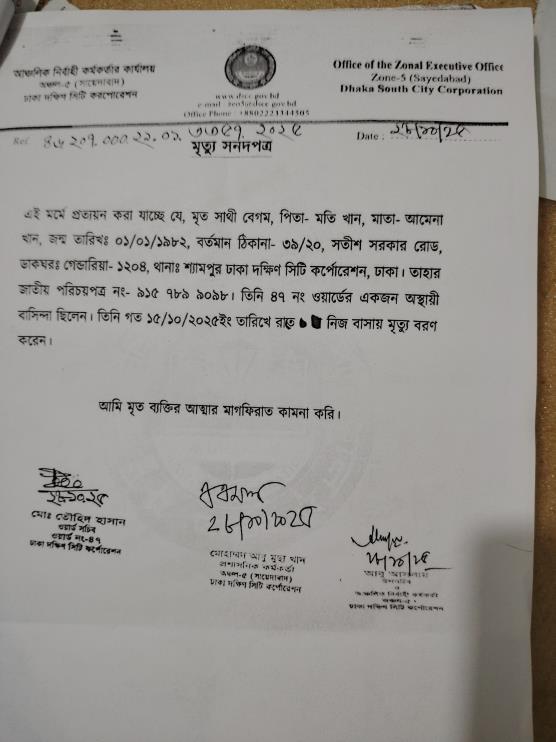 আঞ্চলিক নির্বাহী কর্মকর্তার কার্যালয়
অঞ্চল-৫ (সায়েদাবাদ)
ঢাকা দক্ষিণ সিটি কর্পোরেশন
www.dscc.gov.bd
Office Phone : +8802223344505
Office of the Zonal Executive Office
Zone-5 (Sayedabad)
Dhaka South City Corporation
Ref:
Date : ২৮/১০/২৫
মৃত্যু সনদপত্র
এই মর্মে প্রত্যয়ন করা যাচ্ছে যে, মৃত সাথী বেগম, পিতা- মতি খান, মাতা- আমেনা
খান, জন্ম তারিখঃ ০১/০১/১৯৮২, বর্তমান ঠিকানা- ৩৯/২০, সতীশ সরকার রোড,
ডাকঘরঃ গেন্ডারিয়া- ১২০৪, থানাঃ শ্যামপুর ঢাকা দক্ষিণ সিটি কর্পোরেশন, ঢাকা। তাহার
জাতীয় পরিচয়পত্র নং- ৯১৫ ৭৮৯ ৯০৯৮। তিনি ৪৭ নং ওয়ার্ডের একজন অস্থায়ী
বাসিন্দা ছিলেন। তিনি গত ১৫/১০/২০২৫ইং তারিখে রাত নিজ বাসায় মৃত্যু বরণ
করেন।
আমি মৃত ব্যক্তির আত্মার মাগফিরাত কামনা করি।
২৮/১০/২৫
মোঃ তৌহিদ হাসান
ওয়ার্ড সচিব
ওয়ার্ড নং-৪৭
ঢাকা দক্ষিণ সিটি কর্পোরেশন
২৮/১০/২০২৫
মোহাম্মদ আবু মুছা খান
প্রশাসনিক কর্মকর্তা
অঞ্চল-৫ (সায়েদাবাদ)
ঢাকা দক্ষিণ সিটি কর্পোরেশন
২৮/১০/২৫
আবু আসলাম
উপসচিব
ও
আঞ্চলিক নির্বাহী কর্মকর্তা
অঞ্চল-৫
ঢাকা দক্ষিণ সিটি কর্পোরেশন